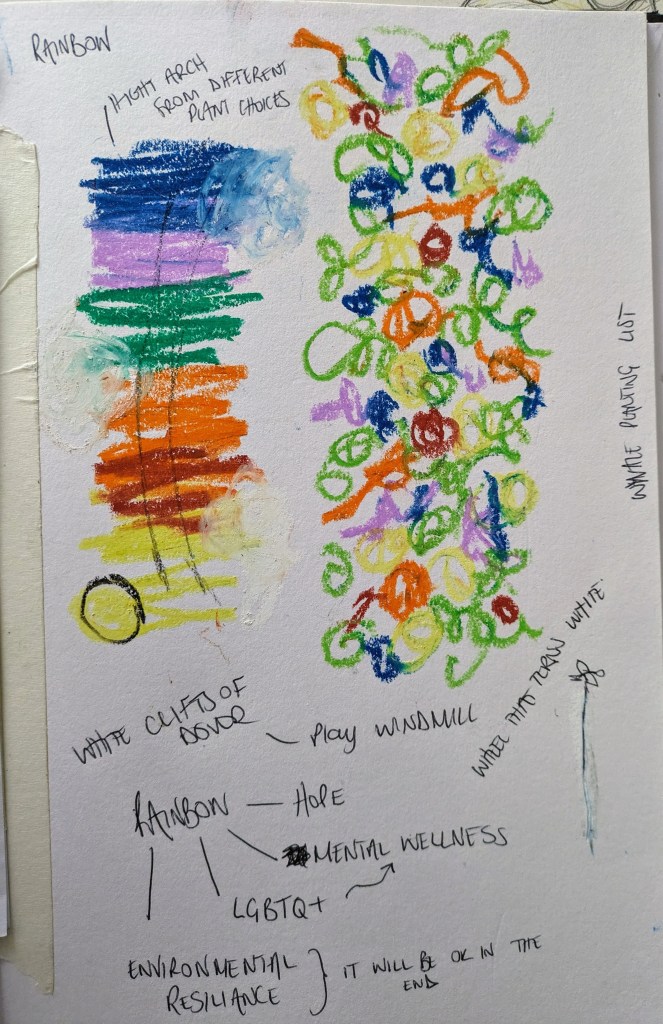 RAINBOW
LIGHT ARCH
FROM DIFFERENT
PLANT CHOICES
PLANTING LIST
WHITE CLIFTS OF
DOVOR
Play WINDMILL
WHEEL THAT TURNS WHITE
RAINBOW — HOPE
MENTAL WELLNESS
LGBTQ+
ENVIRONMENTAL
RESILIANCE
IT WILL BE OK IN THE
END